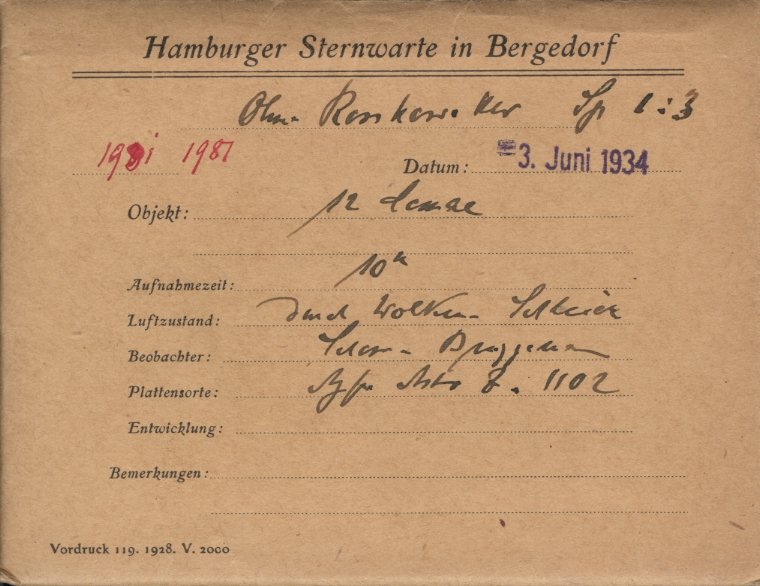 Hamburger Sternwarte in Bergedorf
Sp 1:3
1981 1981
Datum: 3. Juni 1934
Objekt: 12 Comae
Aufnahmezeit: 10m
Luftzustand: durch Wolken-Schleier
Beobachter:
Plattensorte: Agfa Astro 1102
Entwicklung:
Bemerkungen:
Vordruck 119. 1928. V. 2000